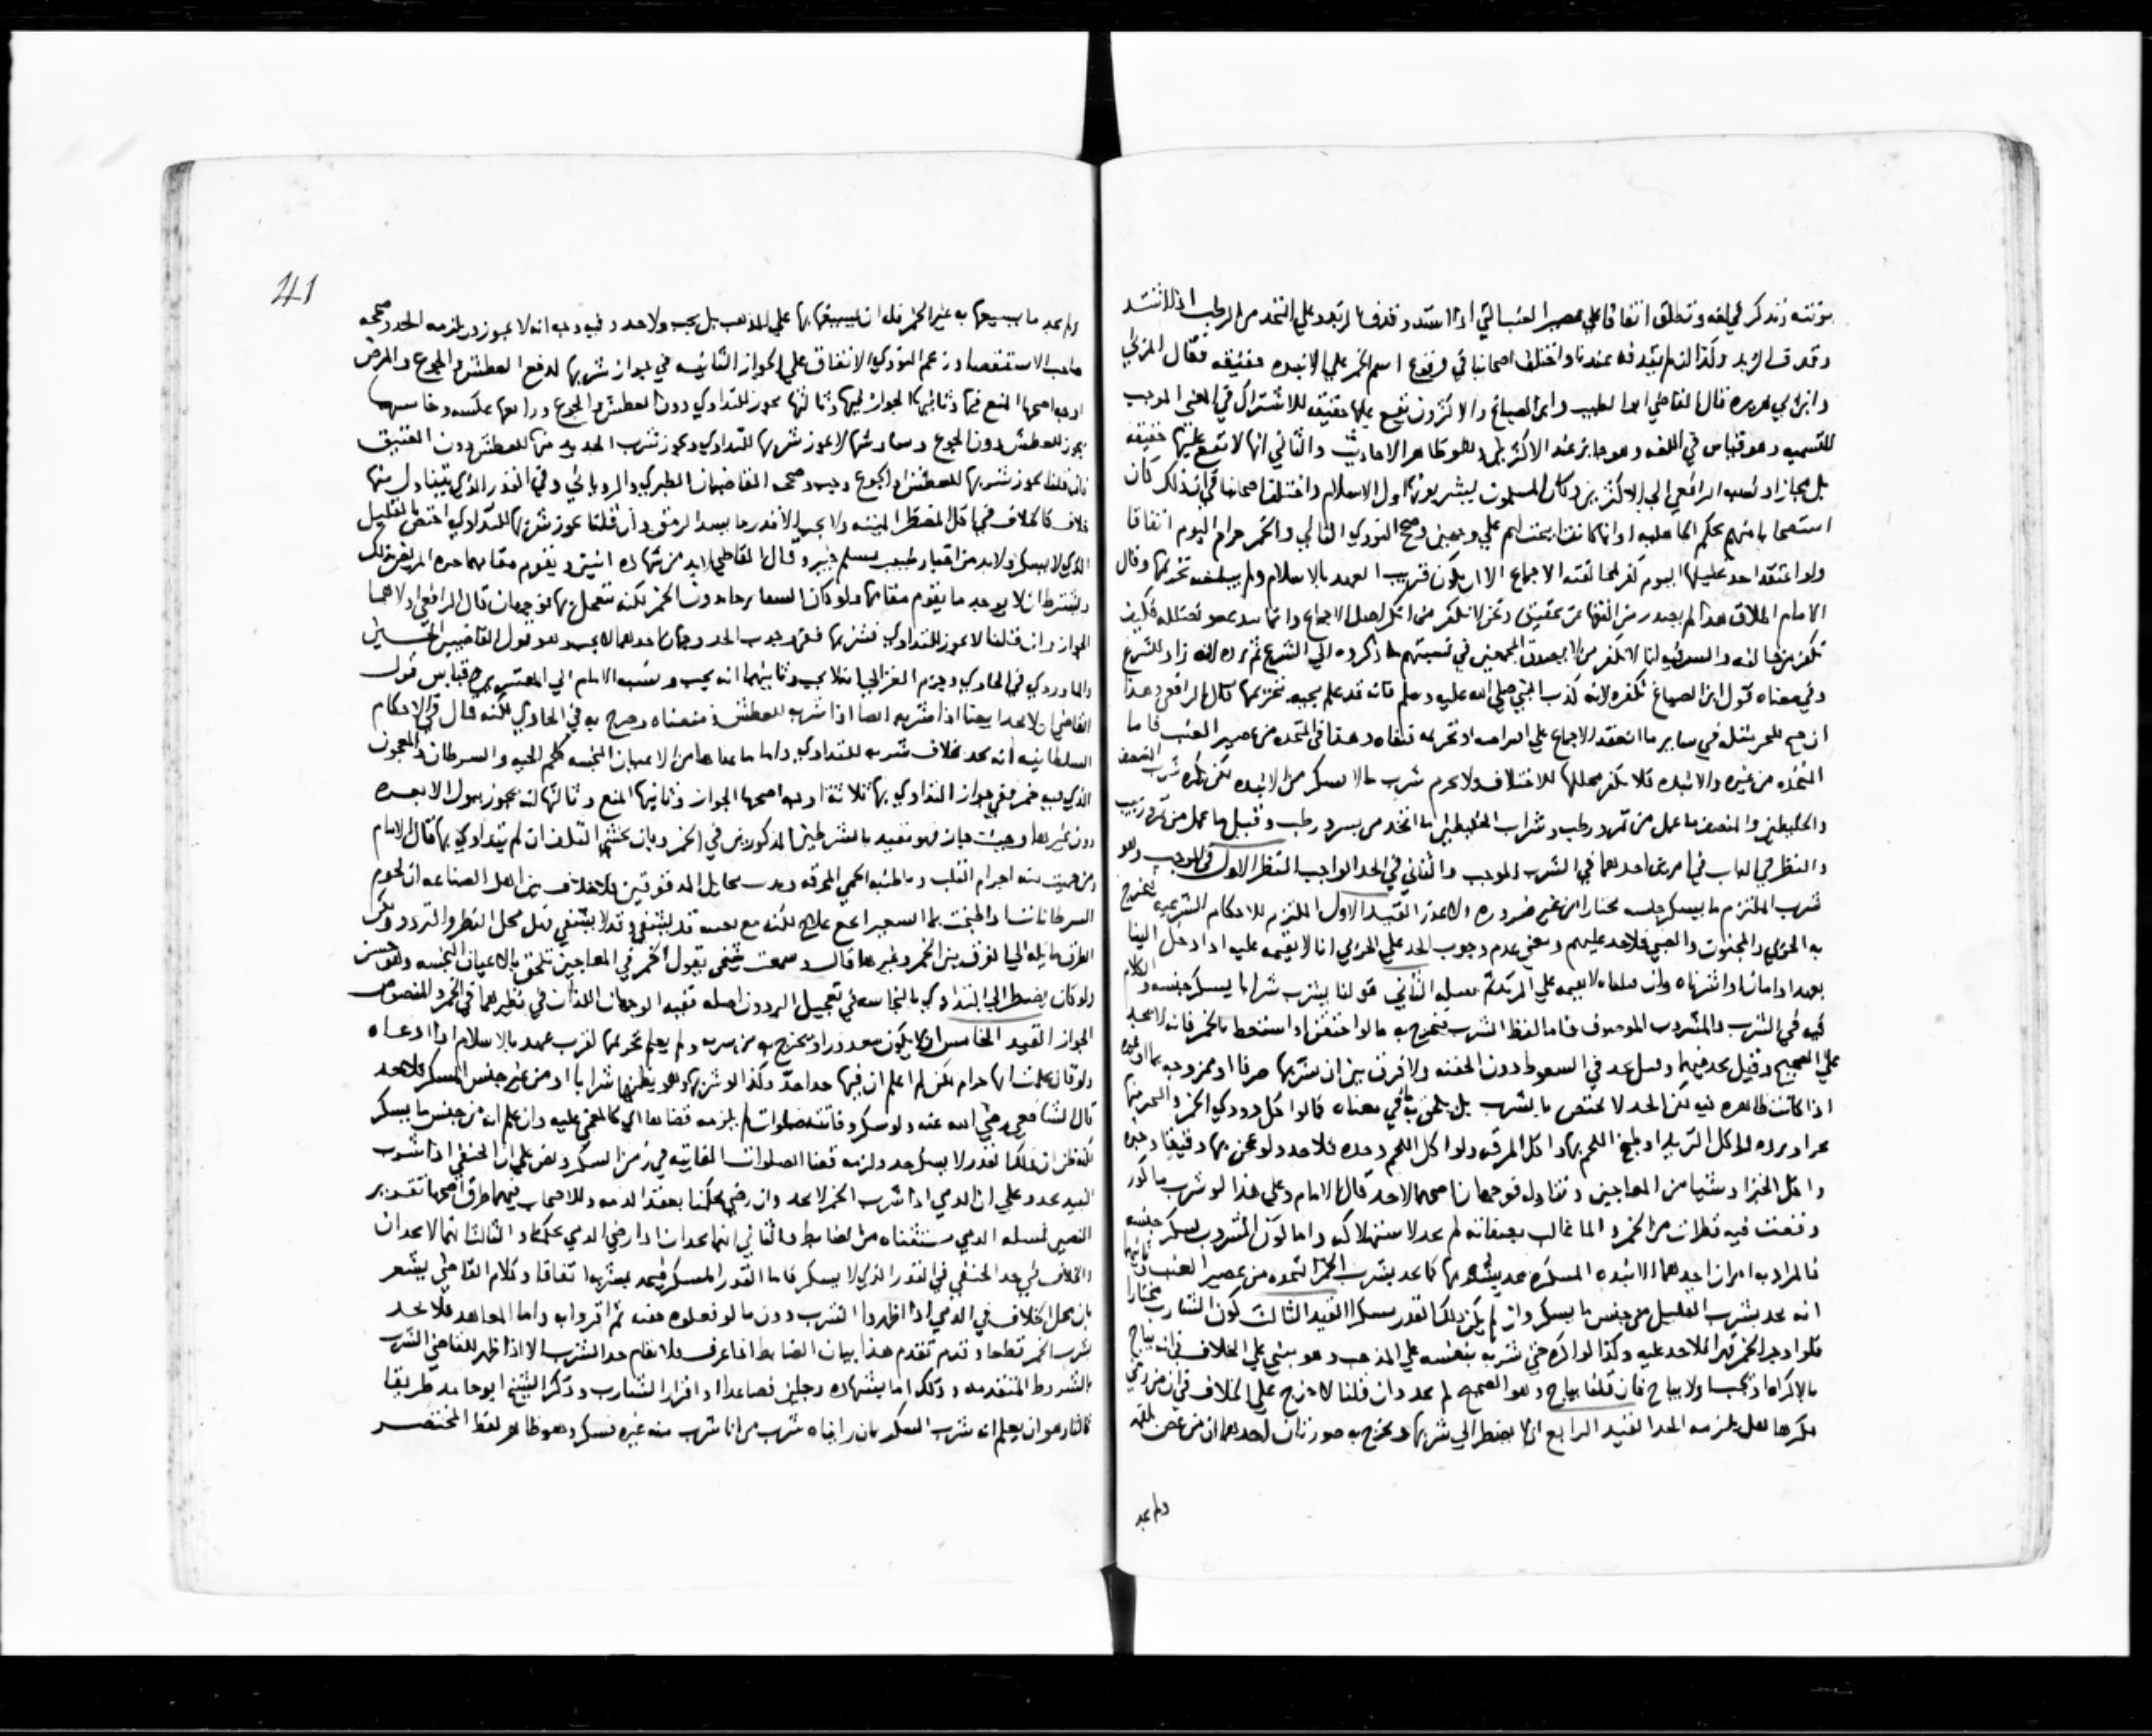 مؤنثه وتذكر في لغه وتطلق اتفاقا علي عصير العنب التي اذا اشتد وقذف بالزبد وعلي المتخذ من الرطب اذا اشتد
وقذف الزبد وكذا ان لم يقذفه عندنا واختلف اصحابنا في وقوع اسم الخمر علي الانبذه حقيقه فقال المزني
وابن ابي هريره قال القاضي ابو الطيب وابن الصباغ والاكثرون تقع عليها حقيقه للاشتراك في المعني الموجب
للتسميه وهو قياس في اللغه وهو جايز عند الاكثرين وهو ظاهر الاحاديث والثاني انها لا تقع عليها حقيقه
بل مجازا ونسبه الرافعي الي الاكثرين وكان المسلمون يشربونها اول الاسلام واختلف اصحابنا في ان ذلك كان
استصحابا منهم بحكم الجاهليه او انها كانت ابيحت لهم علي وجهين وصحح النووي الثاني والخمر حرام اليوم اتفاقا
ولو اعتقد احد تحليلها اليوم كفر لمخالفته الاجماع الا ان يكون قريب العهد بالاسلام ولم يبلغه تحريمها وقال
الامام اطلاق هذا لم يصدر من الفقها عن تحقيق ونحن لا نكفر من انكر اصل الاجماع وانما نبدعه ونضلله فكيف
نكفر من خالفه والسر فيه انا لا نكفر من لا يصدق المجمعين في نسبتهم ما ذكروه الي الشرع ثم يرده لانه زاد للشرع
وفي معناه قول ابن الصباغ نكفره لانه كذب النبي صلي الله عليه وسلم فانه قد علم بحججه تحريمها قال الرافعي وهذا
ان صح فليجر مثله في ساير ما انعقد الاجماع علي افتراضه او تحريمه فنفاه وهذا في المتخذه من عصير العنب فاما
المتخذه من غيره والانبذه فلا يكفر محللها للاختلاف ولا يحرم شرب مالا يسكر من الانبذه لكن يكره شرب المنصف
والخليطين والمنصف ما عمل من تمر ورطب وشراب الخليطين ما اتخذ من بسر ورطب وقيل ما عمل من تمر وزبيب
والنظر في الباب في امرين احدهما في الشرب الموجب والثاني في الحد الواجب النظر الاول في الموجب وهو
شرب الملتزم ما يسكر جنسه مختارا من غير ضروره ولا عذر القيد الاول الملتزم للاحكام الشرعيه يخرج
به الحربي والمجنون والصبي فلا حد عليهم ومعني عدم وجوب الحد علي الحربي انا لا نقيمه عليه اذا دخل الينا
بعهد او امان او اسرناه وان قلنا لا نقيمه علي المرتد ثم نسله الثاني قولنا يشرب شرابا يسكر جنسه والكلام
فيه في الشرب والمشروب الموصوف فاما لفظ الشرب فيخرج به ما لو احتقن او استعط بالخمر فانه لا يحد
علي الصحيح وقيل يحد فيهما وقيل يحد في السعوط دون الحقنه ولا فرق بين ان يشربها صرفا او ممزوجه بماء او غيره
اذا كانت ظاهره فيه لكن الحد لا يختص بالشرب بل يلحق به ما في معناه فالواكل دردي الخمر والتحريمها
خمرا وبرده او اكل الثريد او طبخ اللحم بها واكل المرق ولو اكل اللحم وحده فلا حد ولو عجن بها دقيقا وخبزه
واكل الخبز او شيا من المعاجين وتناوله فوجهان اصحهما لا حد قال الامام وعلي هذا لو شرب ما كوز
وقعت فيه قطرات من الخمر والما غالب بصفاته لم يحد لاستهلاكه واما كون المشروب يسكر جنسه
فالمراد به امران احدهما ان الانبذه المسكره يحد بشربها كما يحد بشرب الخمر المتخذه من عصير العنب وثانيهما
انه يحد بشرب القليل من جنس ما يسكر وان لم يكن ذلك القدر مسكرا القيد الثالث كون الشارب مختارا
فلو اوجر الخمر قهرا فلا حد عليه وكذا لو اكره حتي شربه بنفسه علي المذهب وهو مبني علي الخلاف في انه يباح
بالاكراه او يجب او لا يباح فان قلنا يباح وهو الصحيح لم يحد وان قلنا لا خرج علي الخلاف في ان من زني
مكرها هل يلزمه الحد القيد الرابع ان لا يضطر الي شربها ويخرج به صورتان احدهما ان من غص بلقمه
ولم يجد
41
ولم يجد ما يسيغها به غير الخمر فله ان يسيغها بها علي المذهب بل يجب ولا حد وفيه وجه انه لا يجوز ويلزمه الحد وصححه
صاحب الاستقصا وزعم النووي الاتفاق علي الجواز الثانيه في جواز شربها لدفع العطش والجوع والمرض
اوجه اصحها المنع فيها وثانيها الجواز فيها وثالثها يجوز للتداوي دون العطش والجوع ورابعها عكسه وخامسها
يجوز للعطش دون الجوع وسادسها لا يجوز شربها للتداوي ويجوز شرب الجديد منها للعطش دون العتيق
فان قلنا يجوز شربها للعطش او الجوع وجب وصححه القاضيان الطبري والروياني وفي القدر الذي يتناول منها
خلاف كالخلاف في اكل المضطر الميته ولا يجب الا قدر ما يسد الرمق وان قلنا يجوز شربها للتداوي اختص بالقليل
الذي لا يسكر ولا بد من اخبار طبيب مسلم خبير وقال القاضي لا بد من شهاده اثنين ويقوم مقامهما معرفه المريض ذلك
ويشترط ان لا يوجد ما يقوم مقامها ولو كان الشفا يرجا بدون الخمر لكنه يتعجل بها فوجهان قال الرافعي اولاهما
الجواز وان قلنا لا يجوز للتداوي فشربها ففي وجوب الحد وجهان احدهما لا يجب وهو قول القاضيين الحسين
والماوردي في الحاوي وجزم الغزالي انه لا يجب وثانيهما انه يجب ونسبه الامام الي المعتبرين قياس قول
القاضي ولا يحد ايضا اذا شربه ايضا اذا شربه للعطش ومنعناه وصرح به في الحاوي لكنه قال في الاحكام
السلطانيه انه يحد بخلاف شربه للتداوي واما ما عداها من الاعيان النجسه كلحم الحيه والسرطان والمعجون
الذي فيه خمر ففي جواز التداوي بها ثلاثه اوجه اصحها الجواز وثانيها المنع وثالثها انه يجوز ببول الابل وحده
دون غيرها وحيث جاز فهو مقيد بالشرطين المذكورين في الخمر وبان يخشي التلف ان لم يتداوي بها قال الامام
السرطانات اذا طبخت بما الشعير انجع علاج لكنه مع نفسه قد يشفي وقد لا يشفي فهل محل النظر والتردد ولكن
ولو كان يضطر الي التداوي بالنجاسه في تعجيل البرء دون اصله ففيه الوجهان اللذان في نظيرهما في الخمر والمنصوص
الجواز القيد الخامس ان لا يكون معذورا ويخرج به من شربه ولم يعلم تحريمها لقرب عهده بالاسلام اذا ادعاه
ولو قال علمت انها حرام لكن لم اعلم ان فيها حدا حد وكذا لو شربها وهو يظنها شرابا اخر من غير جنس المسكر فلا حد
قال الشافعي رضي الله عنه ولو سكر وفاتته صلوات لم يلزمه قضاها كالمغمي عليه وان علم انه من جنس ما يسكر
لكنه ظن ان ذلك القدر لا يسكر حد ولزمه قضا الصلوات الفايته في زمن السكر ونص علي ان الحنفي اذا شرب
النبيذ حد وعلي ان الذمي اذا شرب الخمر لا يحد وان رضي بحكمنا بعقد الذمه وللاصحاب فيهما طرق اصحها تقرير
النصين فمسله الذمي مستثناه من الضابط والثاني انهما يحدان اذا رضي الذمي بحكمنا والثالث انهما لا يحدان
والخلاف في حد الحنفي في القدر الذي لا يسكر فاما القدر المسكر فيحد بشربه اتفاقا وكلام القاضي يشعر
بان محل الخلاف في الذمي اذا اظهروا الشرب دون ما لو فعلوه خفيه ثم اقروا به واما المعاهد فلا يحد
بشرب الخمر قطعا وقدم تقدم هذا بيان الضابط اذا عرف فلا يقام حد الشرب الا اذا ظهر للقاضي الشرب
بالشروط المتقدمه وذلك اما بشهاده رجلين فصاعدا او اقرار الشارب وذكر الشيخ ابو حامد طريقا
ثالثا وهو ان يعلم انه شرب المسكر بان رايناه شرب من انا شرب منه غيره فسكر وهو ظاهر لفظ المختصر